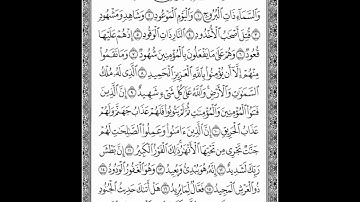 وَٱلسَّمَآءِ ذَاتِ ٱلْبُرُوجِ ١ وَٱلْيَوْمِ ٱلْمَوْعُودِ ٢ وَشَاهِدٍ وَمَشْهُودٍ ٣
قُتِلَ أَصْحَٰبُ ٱلْأُخْدُودِ ٤ ٱلنَّارِ ذَاتِ ٱلْوَقُودِ ٥ إِذْ هُمْ عَلَيْهَا
قُعُودٌ ٦ وَهُمْ عَلَىٰ مَا يَفْعَلُونَ بِٱلْمُؤْمِنِينَ شُهُودٌ ٧ وَمَا نَقَمُوا۟
مِنْهُمْ إِلَّآ أَن يُؤْمِنُوا۟ بِٱللَّهِ ٱلْعَزِيزِ ٱلْحَمِيدِ ٨ ٱلَّذِى لَهُۥ مُلْكُ
ٱلسَّمَٰوَٰتِ وَٱلْأَرْضِ وَٱللَّهُ عَلَىٰ كُلِّ شَىْءٍ شَهِيدٌ ٩ إِنَّ ٱلَّذِينَ
فَتَنُوا۟ ٱلْمُؤْمِنِينَ وَٱلْمُؤْمِنَٰتِ ثُمَّ لَمْ يَتُوبُوا۟ فَلَهُمْ عَذَابُ جَهَنَّمَ وَلَهُمْ
عَذَابُ ٱلْحَرِيقِ ١٠ إِنَّ ٱلَّذِينَ ءَامَنُوا۟ وَعَمِلُوا۟ ٱلصَّٰلِحَٰتِ لَهُمْ
جَنَّٰتٌ تَجْرِى مِن تَحْتِهَا ٱلْأَنْهَٰرُ ذَٰلِكَ ٱلْفَوْزُ ٱلْكَبِيرُ ١١ إِنَّ بَطْشَ
رَبِّكَ لَشَدِيدٌ ١٢ إِنَّهُۥ هُوَ يُبْدِئُ وَيُعِيدُ ١٣ وَهُوَ ٱلْغَفُورُ ٱلْوَدُودُ ١٤
ذُو ٱلْعَرْشِ ٱلْمَجِيدُ ١٥ فَعَّالٌ لِّمَا يُرِيدُ ١٦ هَلْ أَتَىٰكَ حَدِيثُ ٱلْجُنُودِ ١٧